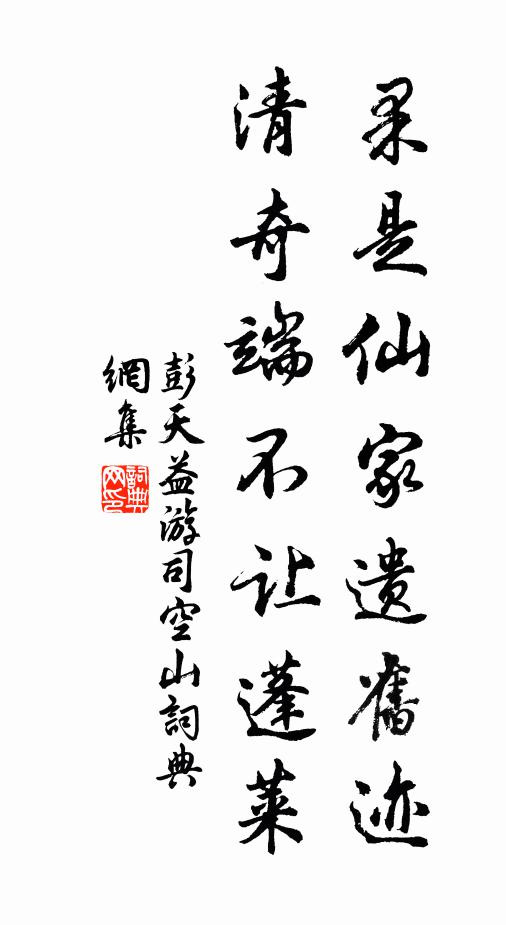 果是仙家遗舊迹
清奇端不让蓬莱
彭天益游司空山詞典
網集
詞典网印